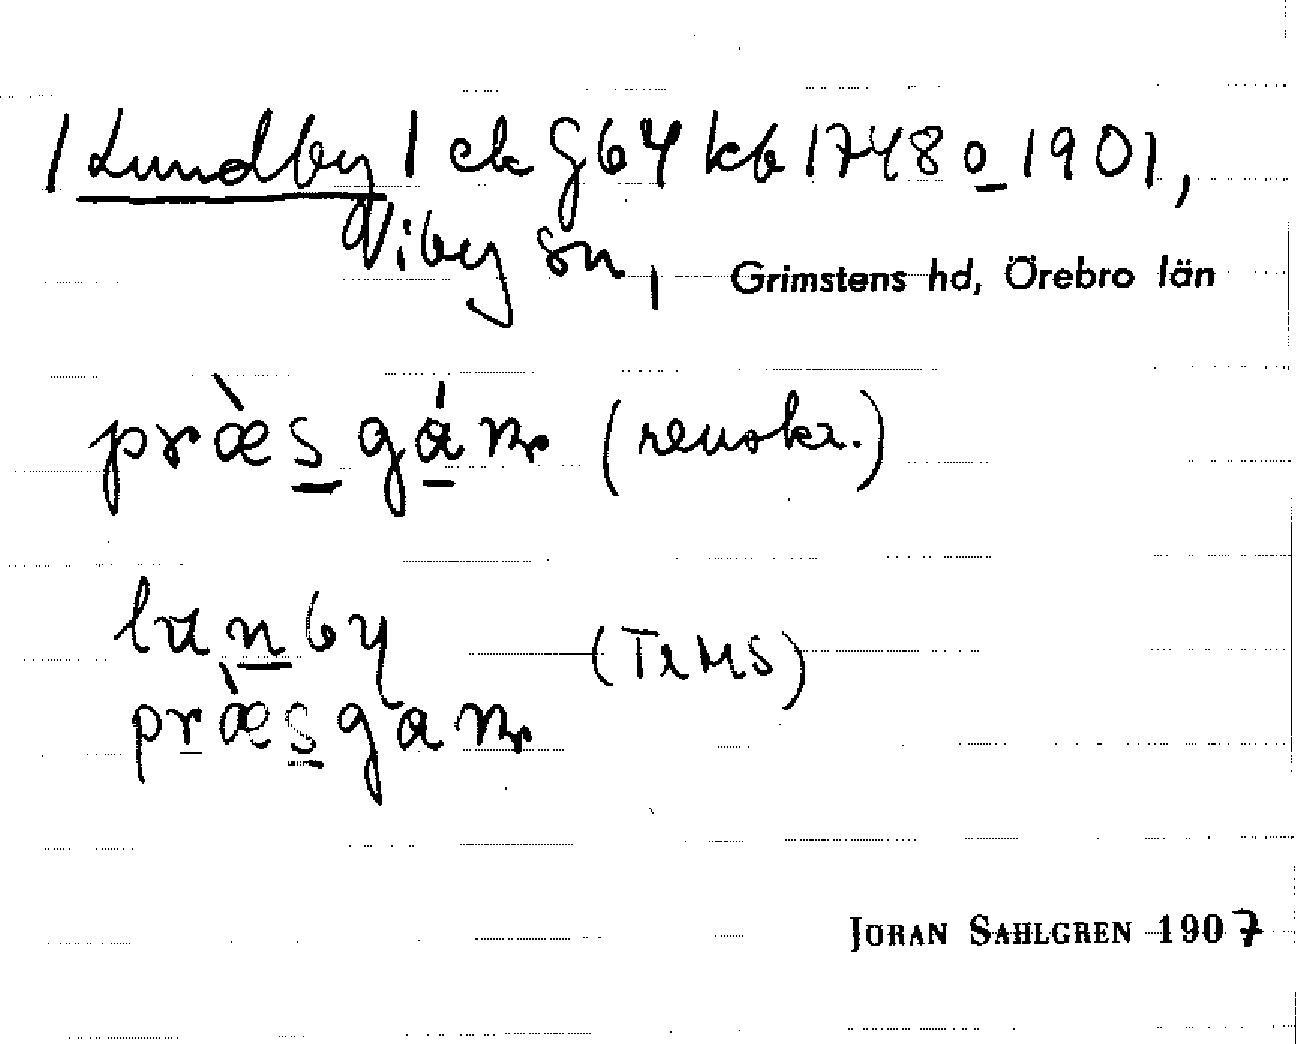 / Lundby / ek G64 kb 1748 o 1901,
Viby sn, Grimstens hd, Örebro län
præ̀s gán (renskr.)
lunby (Tr MS)
præ̀s gan
JÖRAN SAHLGREN 1907